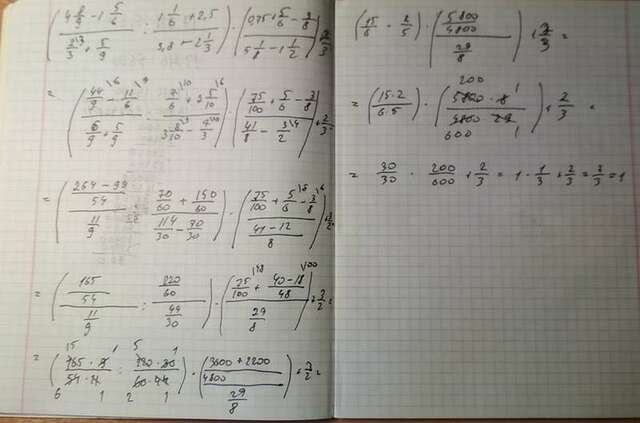 (4 8/9 - 1 5/6 / 2/3 + 5/9 : 1 1/6 + 2,5 / 3,8 - 2 1/3) · (0,75 + 5/6 - 3/8 / 5 1/8 - 1 1/2) + 2/3
= (44/9 - 11/6 / 6/9 + 5/9 : 7/6 + 2 5/10 / 3 8/10 - 7/3) · (75/100 + 5/6 - 3/8 / 41/8 - 3/2) + 2/3
= (264 - 99 / 54 / 11/9 : 70/60 + 150/60 / 114/30 - 70/30) · (75/100 + 5/6 - 3/8 / 41 - 12 / 8) + 2/3
= (165/54 / 11/9 : 220/60 / 44/30) · (75/100 + 40 - 18 / 48 / 29/8) + 2/3 =
= (165 · 9 / 54 · 11 : 220 · 30 / 60 · 44) · (3600 + 2200 / 4800 / 29/8) + 2/3 =
(15/6 · 2/5) · (5800/4800 / 29/8) + 2/3 =
= (15·2 / 6·5) · (5800 · 8 / 4800 · 29) + 2/3 =
= 30/30 · 200/600 + 2/3 = 1 · 1/3 + 2/3 = 3/3 = 1